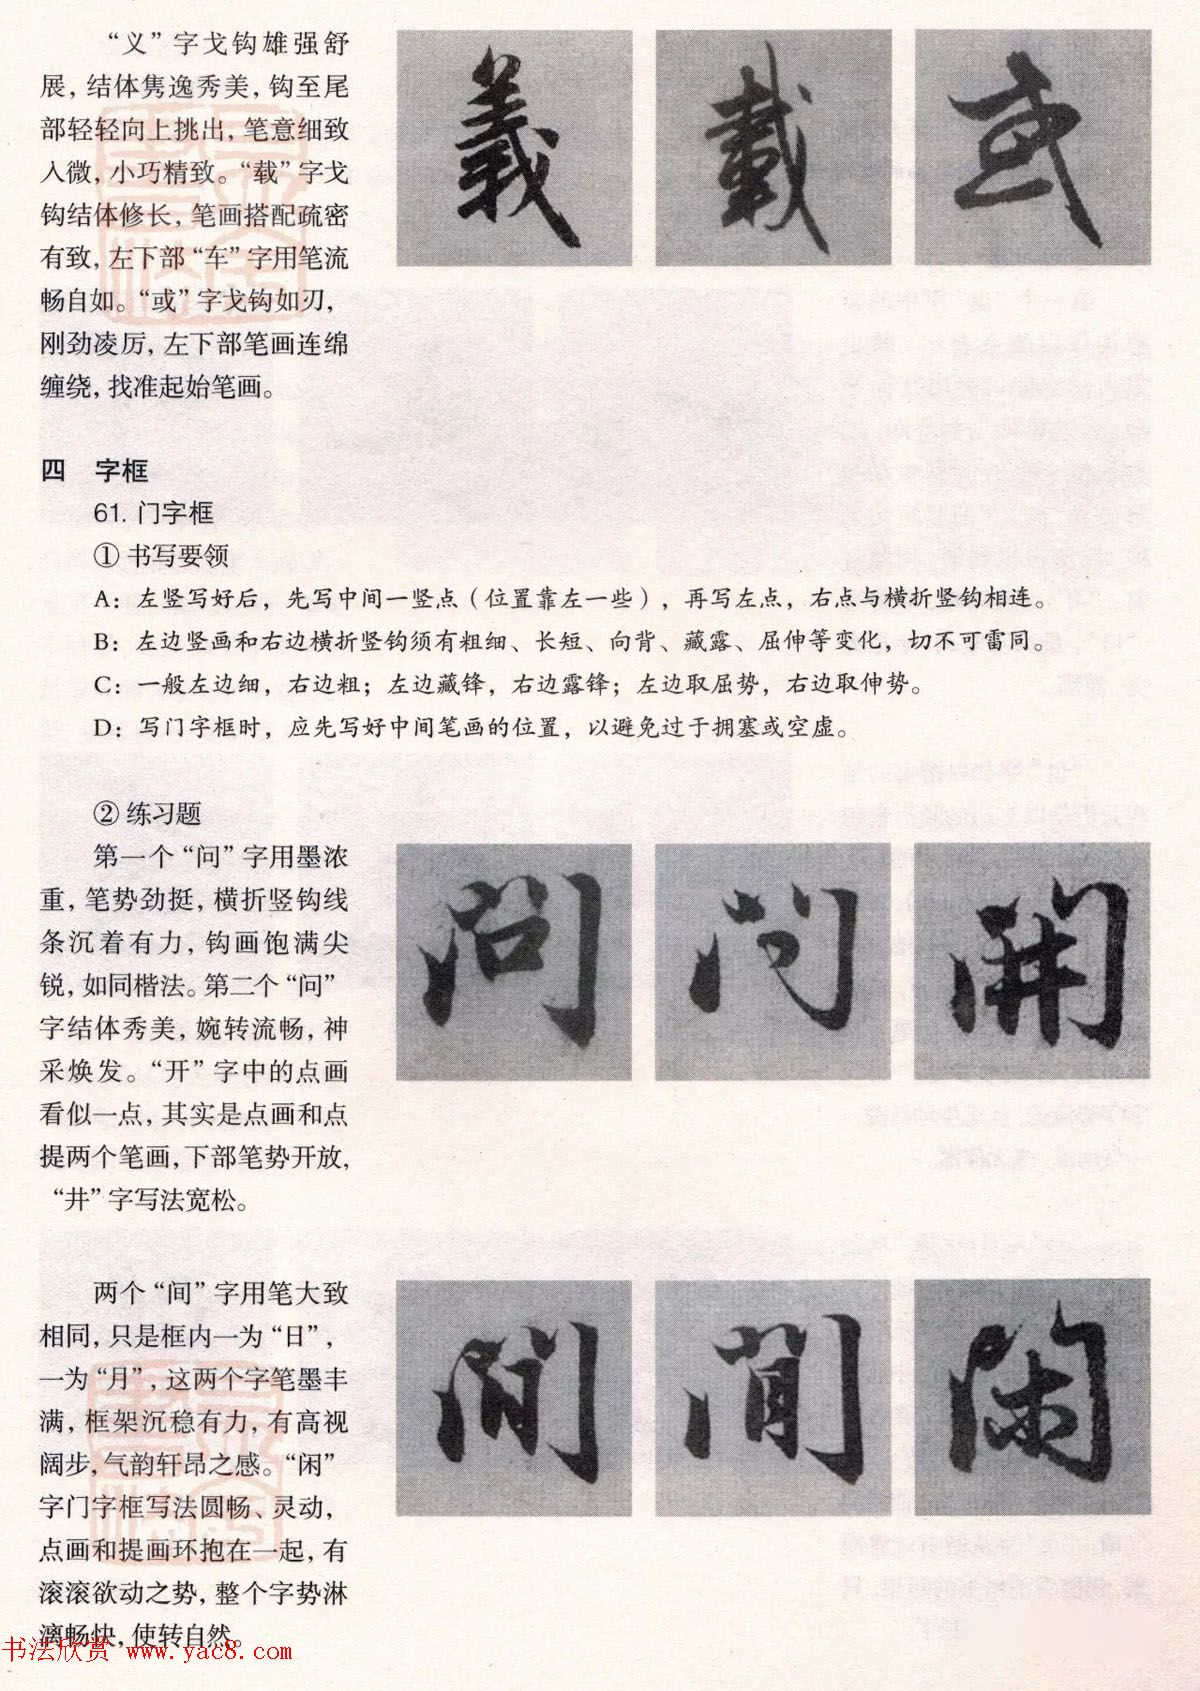 “义”字戈钩雄强舒
展，结体隽逸秀美，钩至尾
部轻轻向上挑出，笔意细致
入微，小巧精致。“载”字戈
钩结体修长，笔画搭配疏密
有致，左下部“车”字用笔流
畅自如。“或”字戈钩如刃，
刚劲凌厉，左下部笔画连绵
缠绕，找准起始笔画。
義 載 或
四 字框
61. 门字框
① 书写要领
A：左竖写好后，先写中间一竖点（位置靠左一些），再写左点，右点与横折竖钩相连。
B：左边竖画和右边横折竖钩须有粗细、长短、向背、藏露、屈伸等变化，切不可雷同。
C：一般左边细，右边粗；左边藏锋，右边露锋；左边取屈势，右边取伸势。
D：写门字框时，应先写好中间笔画的位置，以避免过于拥塞或空虚。
② 练习题
第一个“问”字用墨浓
重，笔势劲挺，横折竖钩线
条沉着有力，钩画饱满尖
锐，如同楷法。第二个“问”
字结体秀美，婉转流畅，神
采焕发。“开”字中的点画
看似一点，其实是点画和点
提两个笔画，下部笔势开放，
“井”字写法宽松。
問 問 開
两个“间”字用笔大致
相同，只是框内一为“日”，
一为“月”，这两个字笔墨丰
满，框架沉稳有力，有高视
阔步，气韵轩昂之感。“闲”
字门字框写法圆畅、灵动，
点画和提画环抱在一起，有
滚滚欲动之势，整个字势淋
漓畅快，使转自然。
間 閒 閑
书法欣赏 www.yac8.com